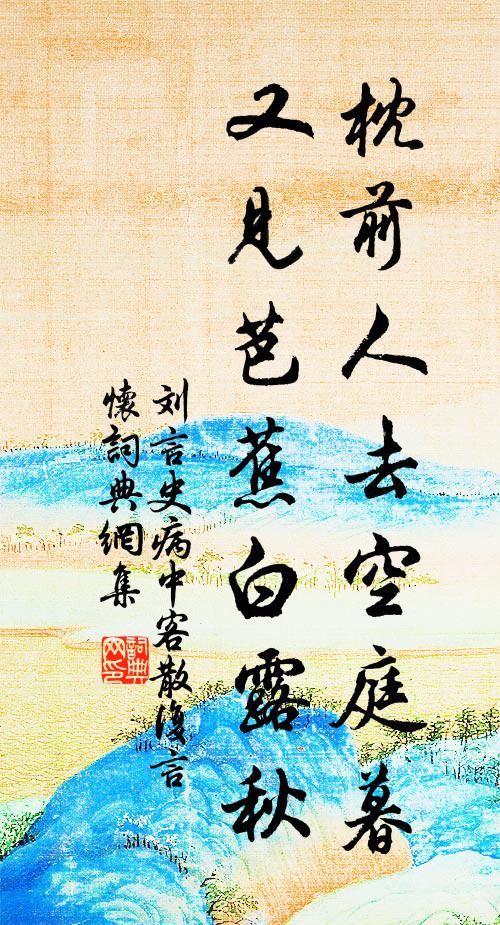 枕前人去空庭暮
又見芭蕉白露秋
刘言史病中客散復言
懷詞典網集
詞典